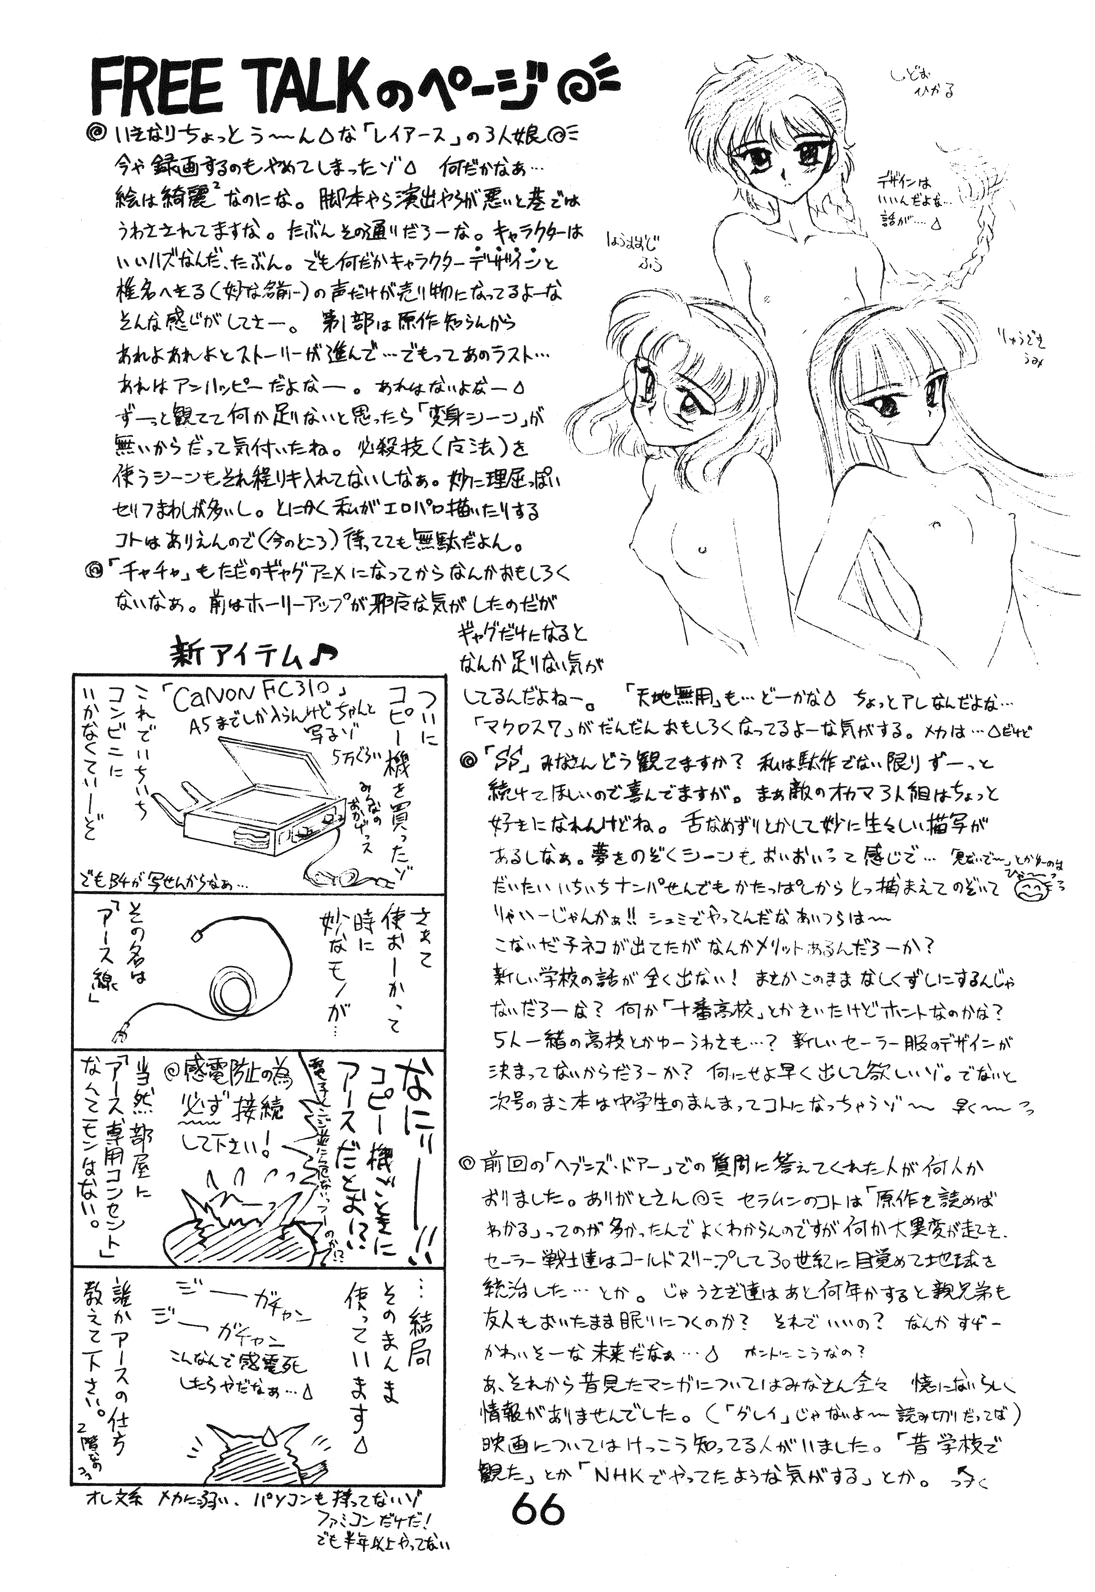 FREE TALKのページ
いきなりちょっとう〜〜んな「レイアース」の3人娘
今や録画するのもやめてしまったゾ 何だかなぁ…
絵は綺麗²なのにな。脚本やら演出やらが悪いと巷では
うわさされてますな。たぶんその通りだろーな。キャラクターは
いいハズなんだ、たぶん。でも何だかキャラクターデザインと
椎名へきる(妙な名前ー)の声だけが売り物になってるよーな
そんな感じがしてさー。第1部は原作知らんから
あれよあれよとストーリーが進んで…でもってあのラスト…
あれはアンハッピーだよなー。あれはないよなー
ずーっと観てて何か足りないと思ったら「変身シーン」が
無いからだって気付いたね。必殺技(魔法)を
使うシーンもそれ程リキ入れてないしなぁ。妙に理屈っぽい
セリフまわしが多いし。とにかく私がエロパロ描いたりする
コトはありえんので(今のところ)待ってても無駄だよん。
「チャチャ」もただのギャグアニメになってからなんかおもしろく
ないなぁ。前はホーリーアップが邪魔な気がしたのだが
ギャグだけになると
なんか足りない気が
してるんだよねー。「天地無用」も…どーかな ちょっとアレなんだよな…
「マクロス7」がだんだんおもしろくなってるよーな気がする。メカは…だけど
しどお
ひかる
デザインは
いいんだよな…
話が…
ほうおおじ
ふう
りゅうざき
うみ
新アイテム♪
ついに
コピー機を買ったゾ
「CANON FC310」
A5までしか入らんけどちゃんと
写るゾ
5万ぐらい
みんなの
おかげっス
これでいちいち
コンビニに
いかなくていーぞ
でもB4が写せんからなぁ…
さぁて
使おーかって
時に
妙なモノが…
その名は
「アース線」
なにぃーーー!!
コピー機ごときに
アースだとぉ!?
@感電防止の為
必ず接続
して下さい!
当然部屋に
「アース専用コンセント」
なんてモンはない。
…結局
そのまんま
使っています
ジーーガチャン
ジーーガチャン
こんなんで感電死
したらやだなぁ…
誰かアースの仕方
教えて下さい。
2階なの
オレ文系 メカに弱い、パソコンも持ってないゾ
ファミコンだけだ!
でも半年以上やってない
「SS」みなさんどう観てますか? 私は駄作でない限りずーっと
続けてほしいので喜んでますが。まぁ敵のオカマ3人組はちょっと
好きになれんけどね。舌なめずりとかして妙に生々しい描写が
あるしなぁ。夢をのぞくシーンも、おいおいって感じで…
だいたいいちいちナンパせんでもかたっぱしからとっ捕まえてのぞいて
りゃいーじゃんかぁ!! シュミでやってんだなあいつらは〜〜
こないだ子ネコが出てたがなんかメリットあるんだろーか?
新しい学校の話が全く出ない! まさかこのままなしくずしにするんじゃ
ないだろーな? 何か「十番高校」とかきいたけどホントなのかな?
5人一緒の高校とかゆーうわさも…? 新しいセーラー服のデザインが
決まってないからだろーか? 何にせよ早く出して欲しいゾ。でないと
次号のまこ本は中学生のまんまってコトになっちゃうゾ〜〜 早く〜〜
前回の「ヘブンズ・ドアー」での質問に答えてくれた人が何人か
おりました。ありがとさん セラムンのコトは「原作を読めば
わかる」ってのが多かったんでよくわからんのですが何か大異変が起こり、
セーラー戦士達はコールドスリープして30世紀に目覚めて地球を
統治した…とか。じゃうさぎ達はあと何年かすると親兄弟も
友人もおいたまま眠りにつくのか? それでいいの? なんかすげー
かわいそーな未来だなぁ… ホントにこうなの?
あ、それから昔見たマンガについてはみなさん全々 懐にないらしく
情報がありませんでした。(「グレイ」じゃないよ〜読み切りだってば)
映画についてはけっこう知ってる人がいました。「昔学校で
観た」とか「NHKでやってたような気がする」とか。
つづく
66